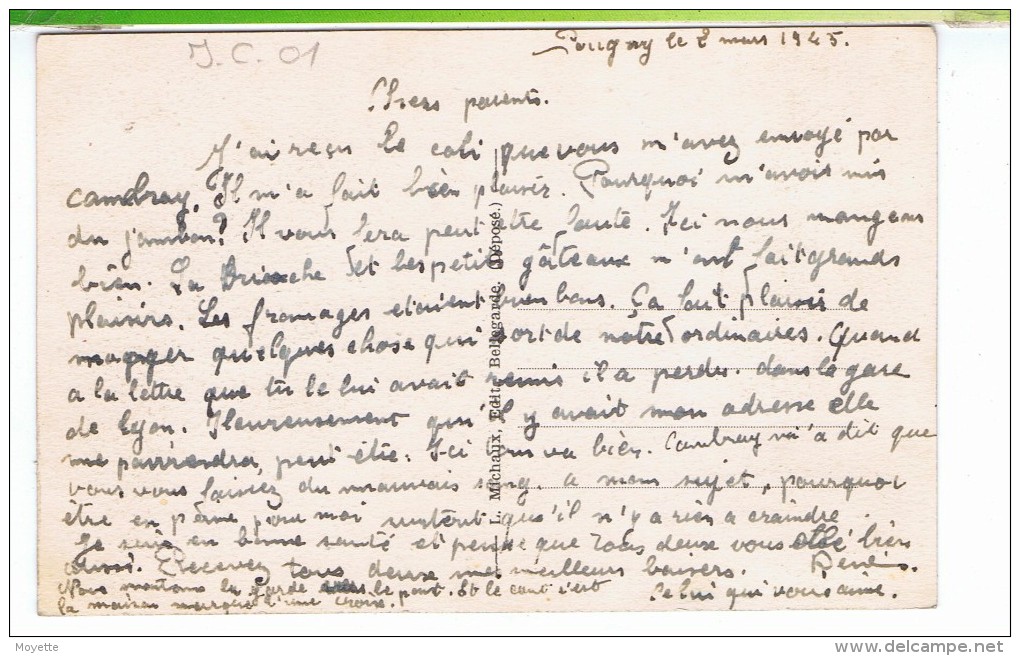 J.C. 01
Pougny le 2 mars 1945.
Chers parents.
J'ai reçu le coli que vous m'avez envoyé par
cambray. Il m'a fait bien plaisir. Pourquoi m'avoir mis
du jambon? Il vous fera peut être faute. Ici nous mangeons
bien. La brioche et les petits gâteaux m'ont fait grands
plaisirs. Les fromages etaient bien bons. Ça fait plaisir de
manger quelques chose qui sort de notre ordinaires. Quand
a la lettre que tu le lui avait remis il a perdu dans la gare
de Lyon. Heureusement qu'il y avait mon adresse elle
me parviendra peut être. Ici tous va bien. Cambray m'a dit que
vous vous faisiez du mauvais sang a mon sujet, pourquoi
être en peine pour moi surtout qu'il n'y a rien a craindre
Je suis en bonne santé et pense que tous deux vous êtes bien
aussi. Recevez tous deux mes meilleurs baisers.
Celui qui vous aime.
Nous montons la garde sur le pont. Et le cant s'est
la maison marquée d'une croix.
L. Michaux, Edit. Bellegarde. (Déposé.)
Moyette
www.delcampe.net